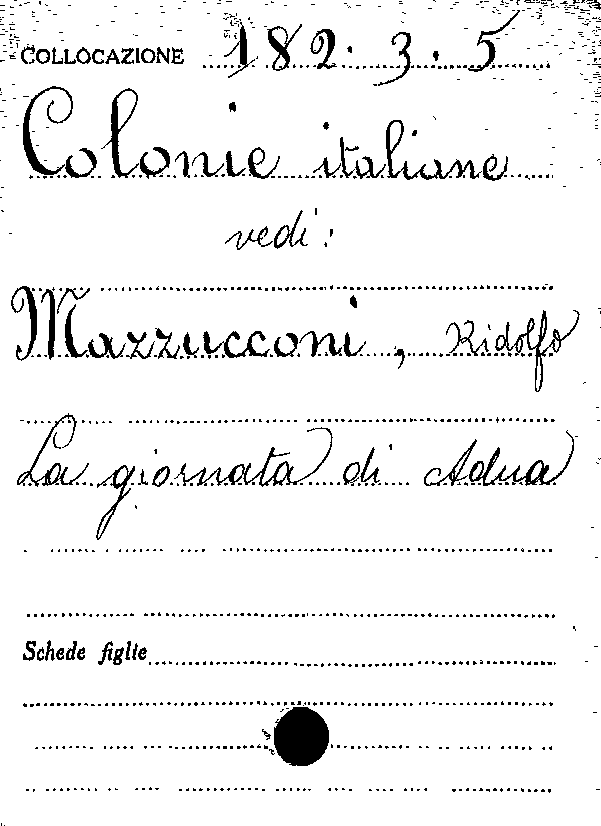 COLLOCAZIONE 182.3.5
Colonie italiane
vedi:
Mazzucconi, Ridolfo
La giornata di Adua
Schede figlie